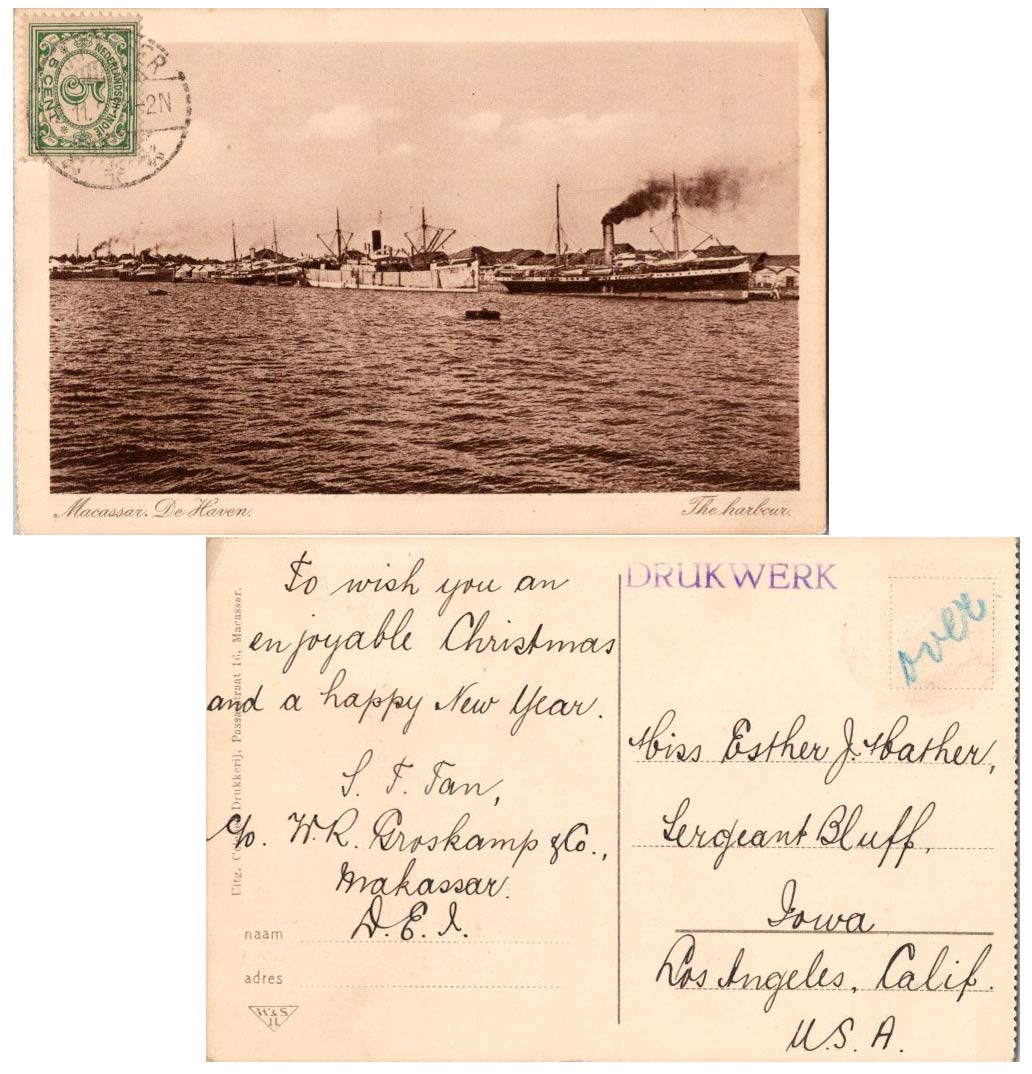 NEDERLANDSCH-INDIE
5
5 CENT
11.
-2N
Macassar. De Haven.
The harbour.
To wish you an
enjoyable Christmas
and a happy New Year.
S. T. Tan,
c/o. W.R. Groskamp & Co.,
Makassar.
D.E.I.
naam
adres
H.& S.
Uitg. Drukkerij, Passarstraat 16, Macassar.
DRUKWERK
over.
Miss Esther J. Mather,
Sergeant Bluff,
Iowa
Los Angeles, Calif.
U.S.A.